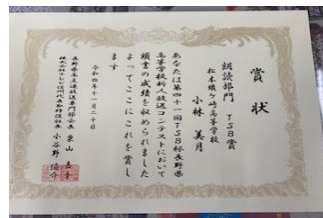 賞状
朗読部門 TSB賞
松本蟻ケ崎高等学校
小林 美月
あなたは第四十一回TSB杯長野県
高等学校新人放送コンテストにおいて
頭書の成績を収められました
よってここにこれを賞し
ます
令和四年十一月二十日
長野県高文連放送専門部会長
株式会社テレビ信州代表取締役社長 小谷野 優介